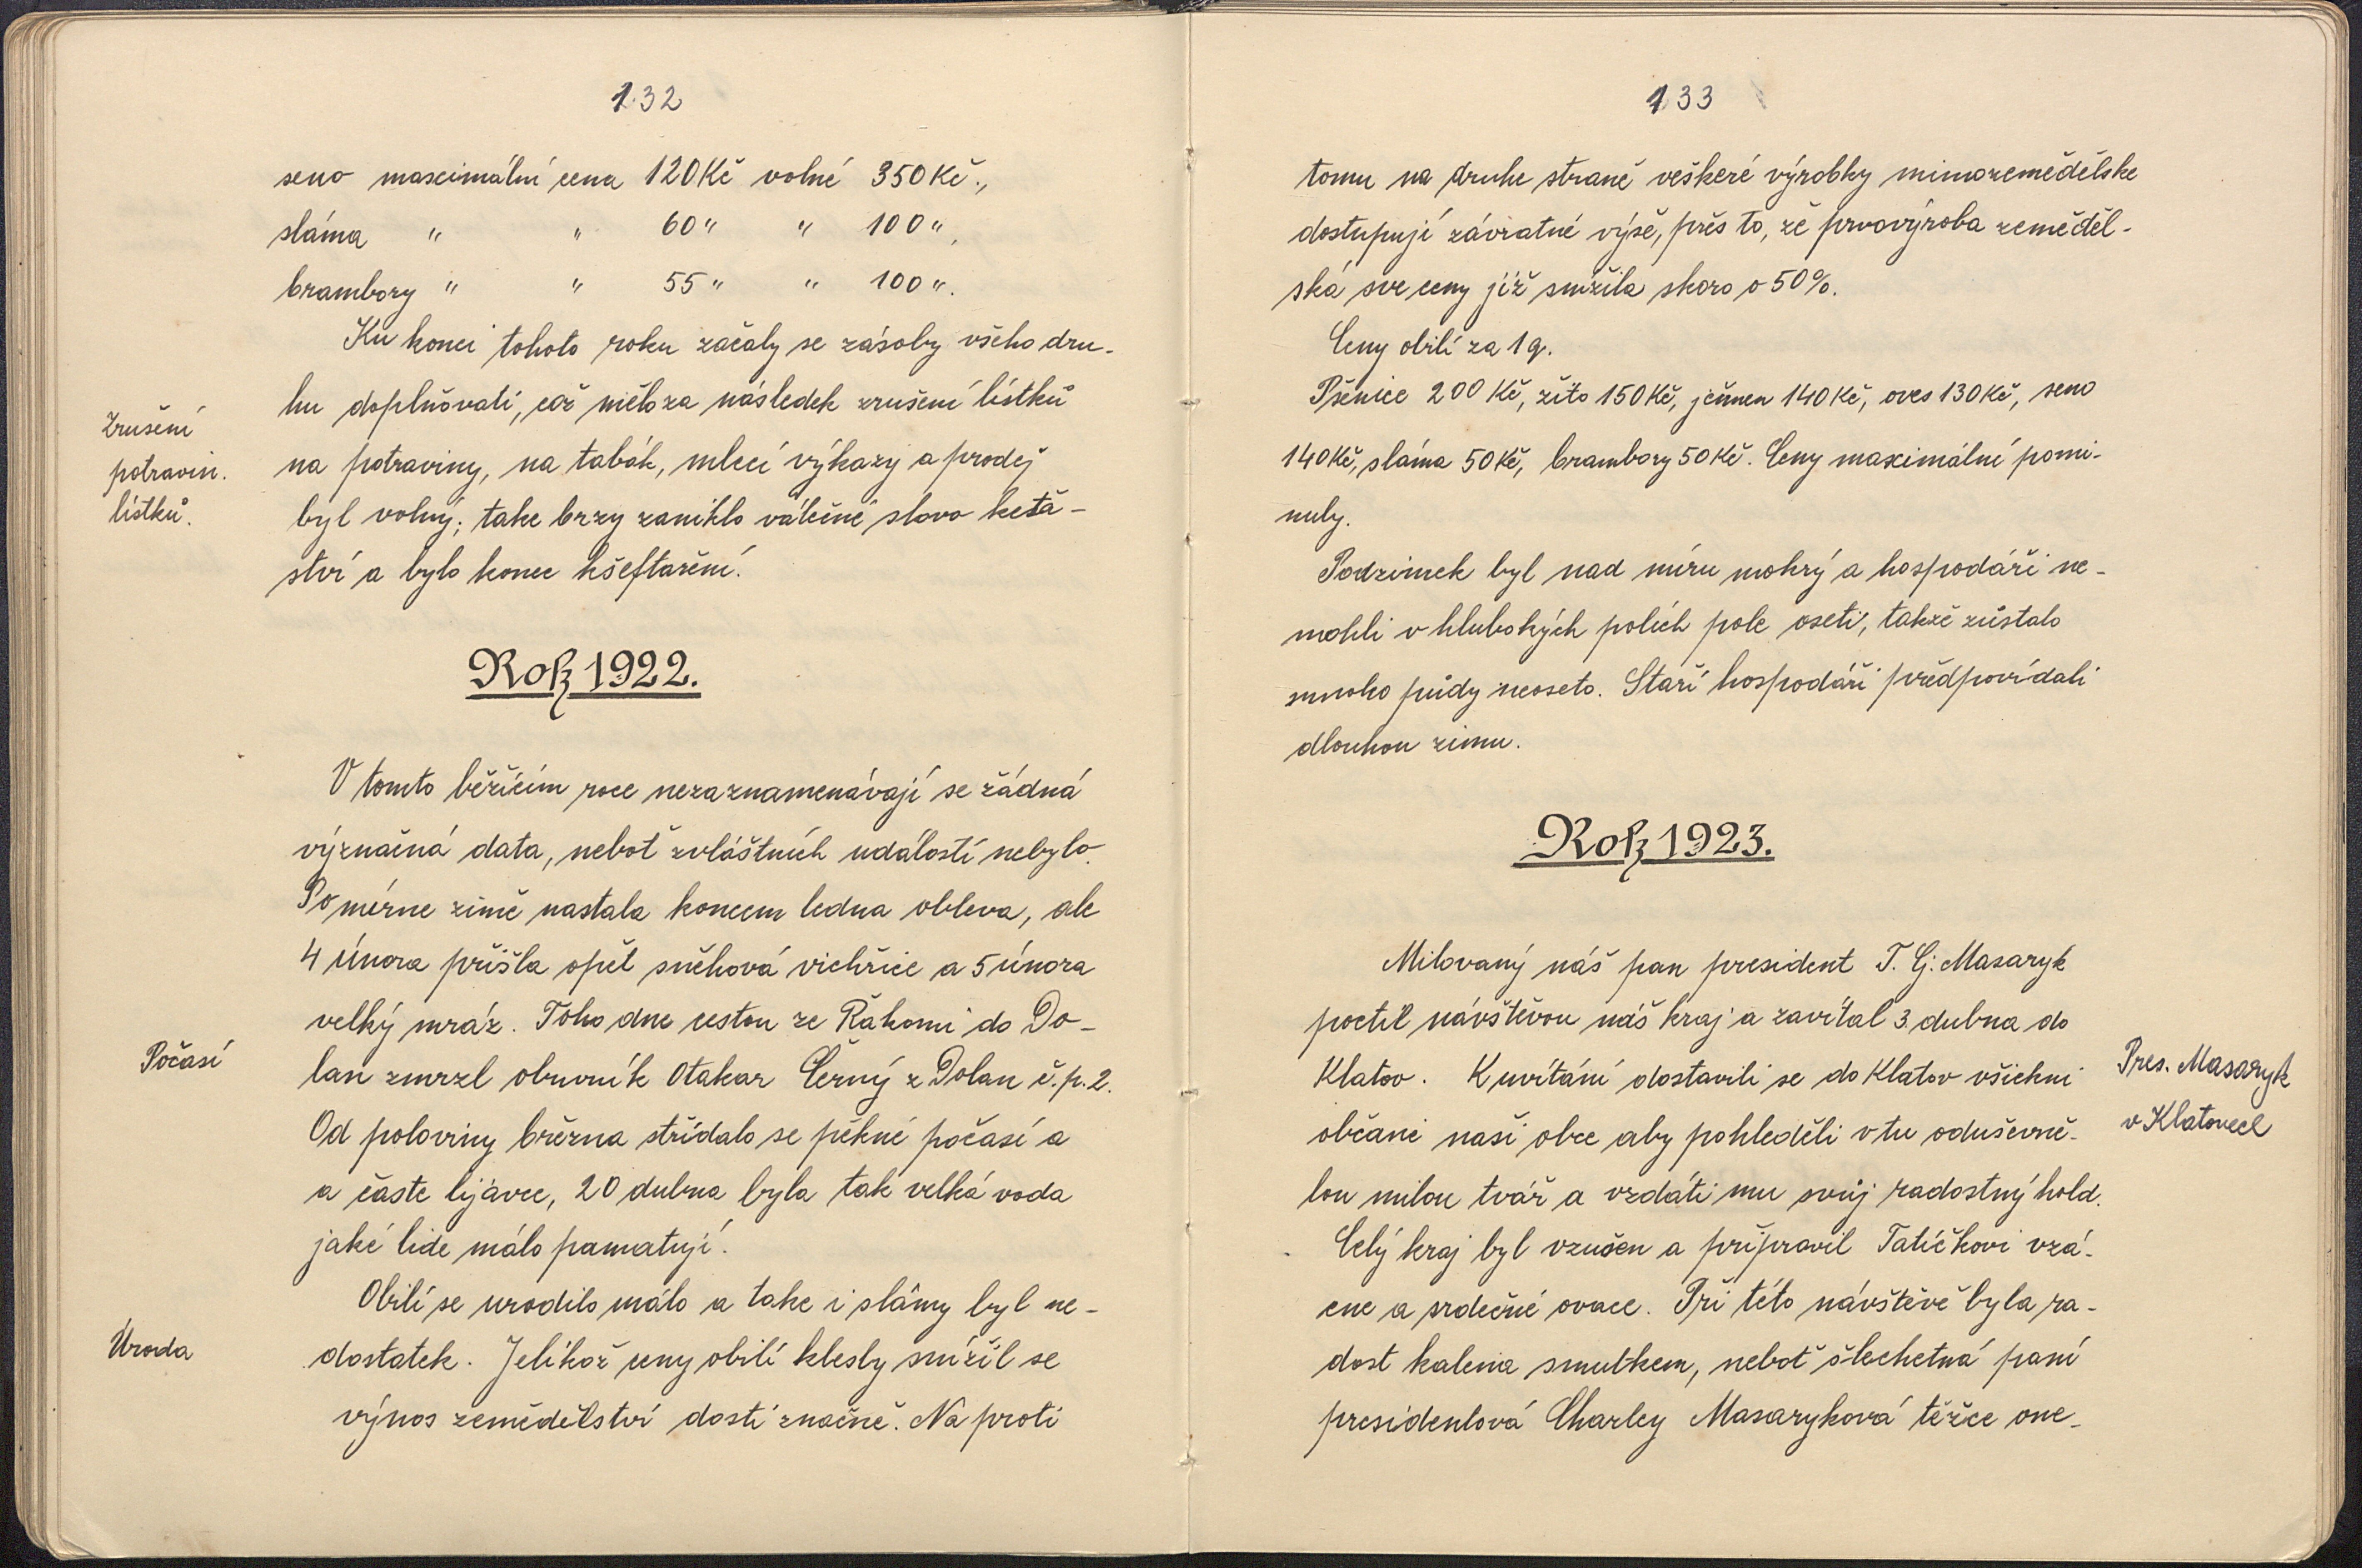 132
seno maximální cena 120 Kč volné 350 Kč.,
sláma " " 60 " " 100 ",
brambory " " 55 " " 100 ".
Ku konci tohoto roku začaly se zásoby všeho dru-
hu doplňovati, což mělo za následek zrušení lístků
Zrušení
potravin.
lístků.
na potraviny, na tabák, mlecí výkazy a prodej
byl volný; take brzy zaniklo válečné slovo keťa-
ství a bylo konec kšeftaření.
Rok 1922.
V tomto běžícím roce nezaznamenávají se žádná
význačná data, neboť zvláštních událostí nebylo.
Po mírne zimě nastala koncem ledna obleva, ale
4 února přišla opět sněhová vichřice a 5 února
velký mráz. Toho dne cestou ze Řakomi do Do-
Počasí
lan zmrzl obuvník Otakar Černý z Dolan č.p. 2.
Od poloviny března střídalo se pěkné počasí a
a časte lijavce, 20 dubna byla tak velká voda
jaké lide málo pamatují.
Obilí se urodilo málo a take i slámy byl ne-
Úroda
dostatek. Jelikož ceny obilí klesly snížil se
výnos zemědělství dosti značně. Na proti
133
tomu na druhe straně veškeré výrobky mimozemědělske
dostupují závratné výše, přes to, že prvovýroba zeměděl-
ská sve ceny již snížila skoro o 50%.
Ceny obilí za 1 q.
Pšenice 200 Kč, žito 150 Kč, ječmen 140 Kč, oves 130 Kč, seno
140 Kč, sláma 50 Kč, brambory 50 Kč. Ceny maximální pomi-
nuly.
Podzimek byl nad míru mokrý a hospodáři ne-
mohli v hlubokých polích pole oseti, takže zůstalo
mnoho půdy neoseto. Staří hospodáři předpovídali
dlouhou zimu.
Rok 1923.
Milovaný náš pan president T. G. Masaryk
poctil návštěvou náš kraj a zavítal 3. dubna do
Klatov. K uvítání dostavili se do Klatov všichni
Pres. Masaryk
v Klatovech
občané naší obce aby pohleděli v tu oduševně-
lou milou tvář a vzdáti mu svůj radostný hold.
Celý kraj byl vzušen a připravil Tatíčkovi vzá-
cne a srdečné ovace. Při této návštěvě byla ra-
dost kalena smutkem, neboť šlechetná paní
presidentová Charley Masaryková těžce one-